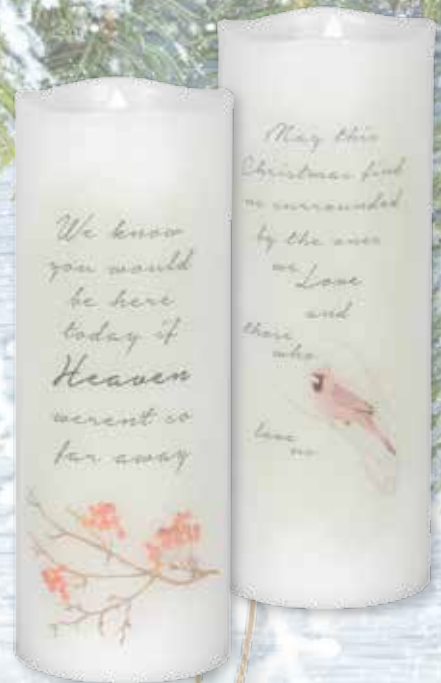 We know
you would
be here
today if
Heaven
werent so
far away
May this
Christmas find
us surrounded
by the ones
we Love
and
those
who
love
us